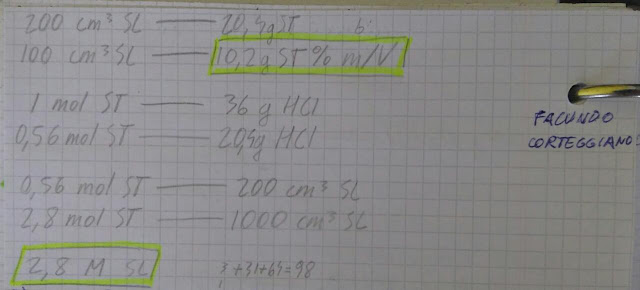 200 cm³ SL — 20,4g ST
100 cm³ SL — 10,2g ST % m/V
1 mol ST — 36 g HCl
0,56 mol ST — 20,4g HCl
FACUNDO
CORTEGGIANO
0,56 mol ST — 200 cm³ SL
2,8 mol ST — 1000 cm³ SL
2,8 M SL
+31+64=98